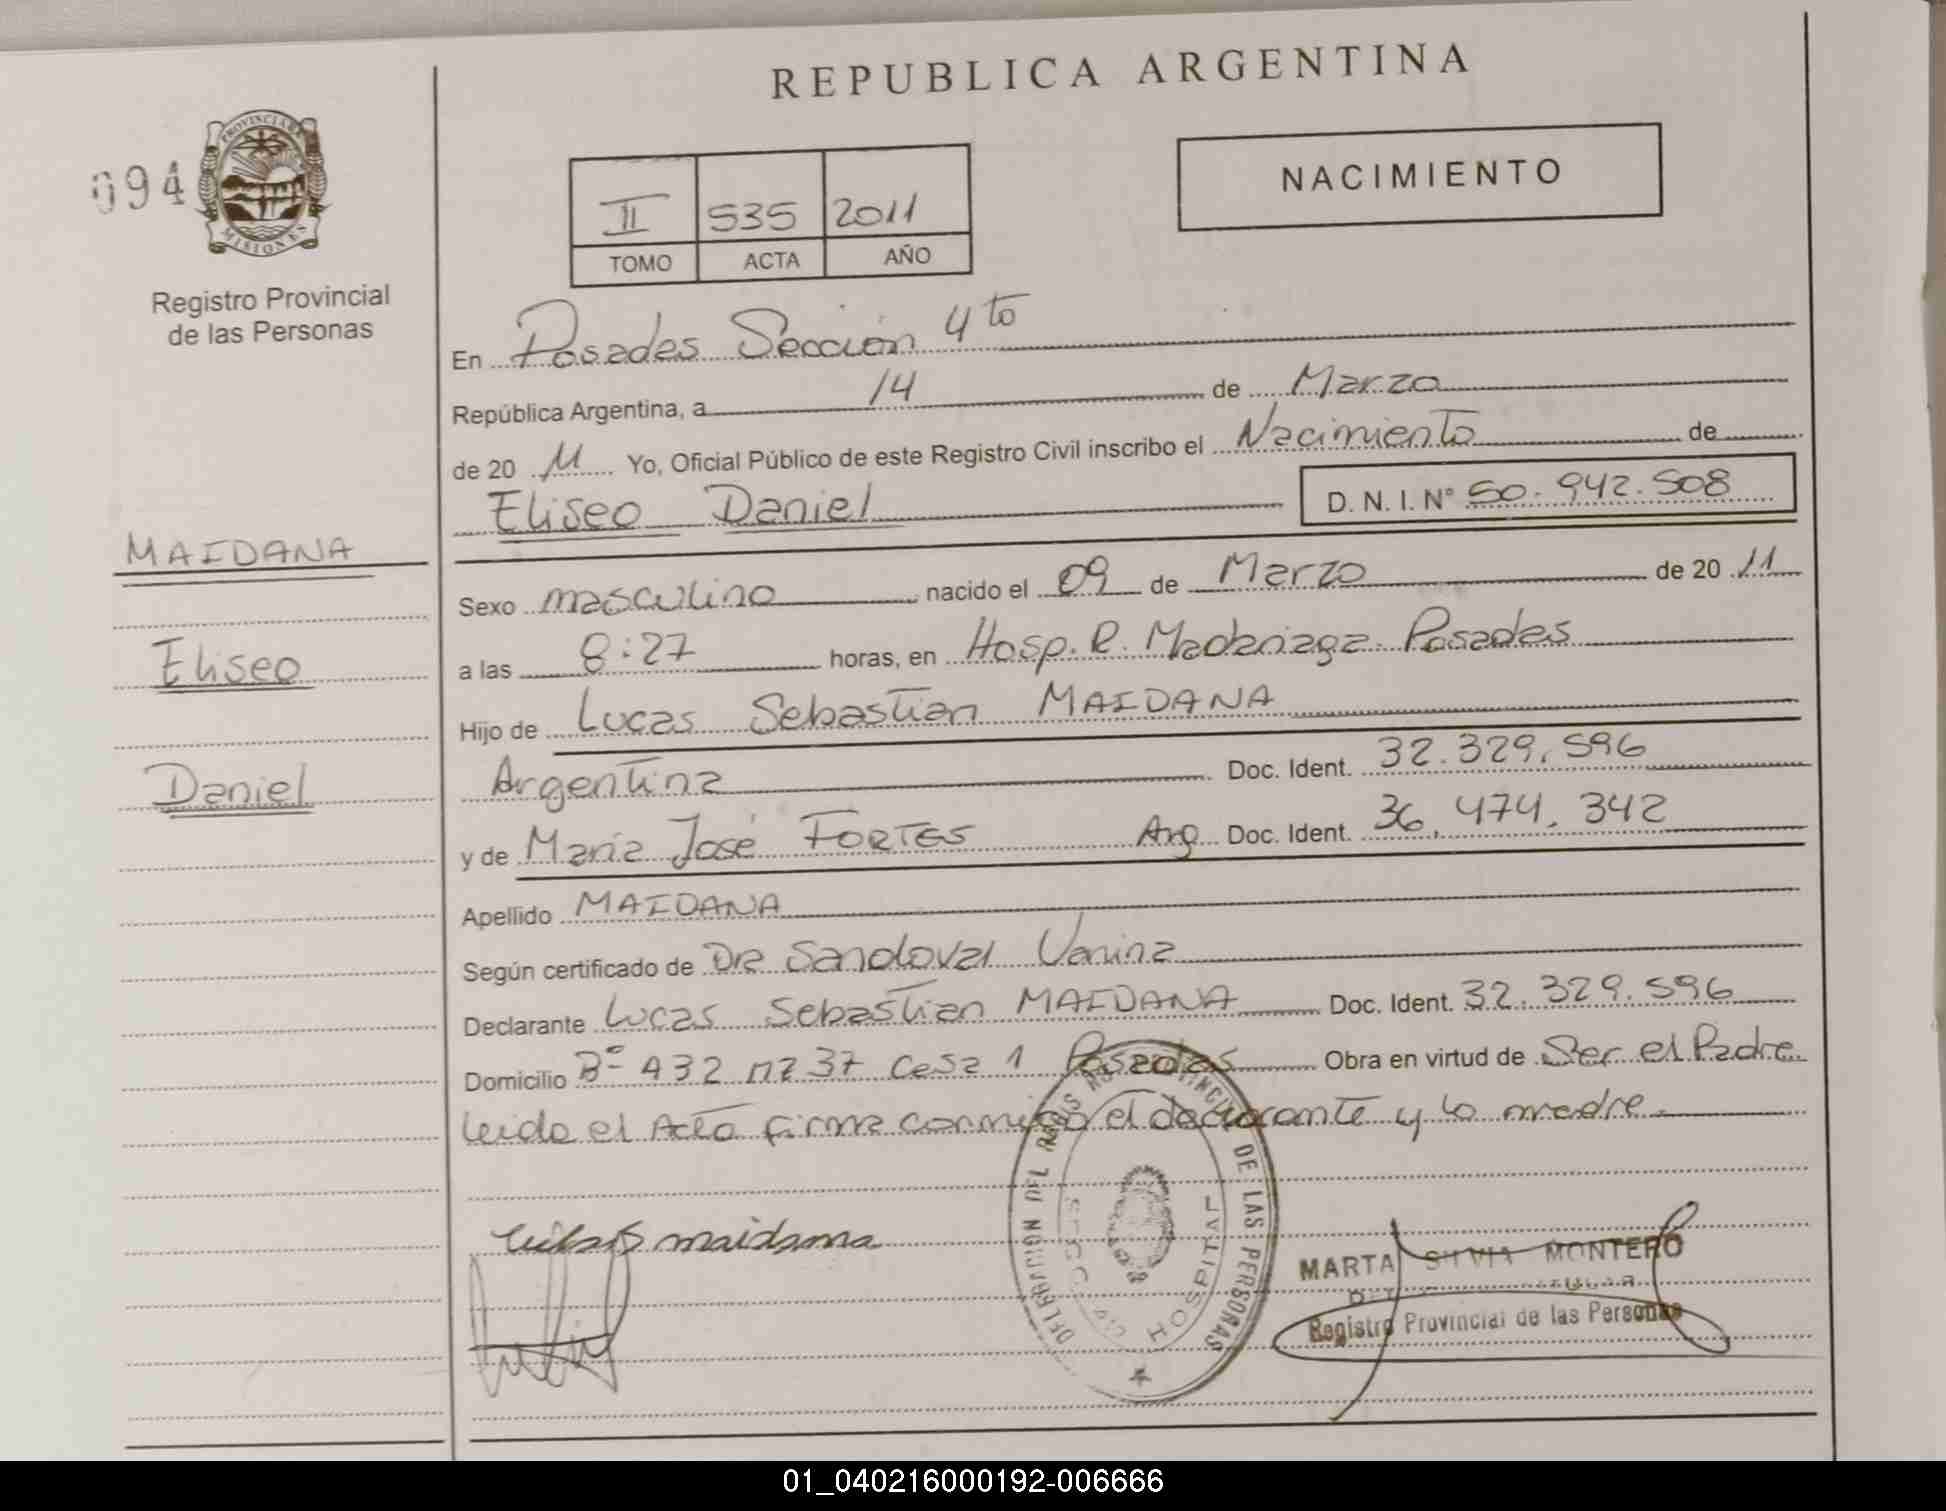 REPUBLICA ARGENTINA
094
PROVINCIA DE MISIONES
Registro Provincial
de las Personas
II 535 2011
TOMO ACTA AÑO
NACIMIENTO
En Posadas Sección 4to
República Argentina, a 14 de Marzo
de 20 11 Yo, Oficial Público de este Registro Civil inscribo el Nacimiento de
Eliseo Daniel D. N. I. N° 50.942.508
MAIDANA
Eliseo
Daniel
Sexo masculino nacido el 09 de Marzo de 20 11
a las 8:27 horas, en Hosp. R. Madariaga. Posadas
Hijo de Lucas Sebastian MAIDANA
Argentina Doc. Ident. 32.329.596
y de Maria José FORTES Arg Doc. Ident. 36.474.342
Apellido MAIDANA
Según certificado de Dra Sandoval Vanina
Declarante Lucas Sebastian MAIDANA Doc. Ident. 32.329.596
Domicilio B° A32 mz 37 casa 1 Posadas Obra en virtud de Ser el Padre
leida el Acta firma conmigo el declarante y la madre.
maidana
DE LAS PERSONAS
HOSPITAL
MARTA SILVIA MONTERO
Registro Provincial de las Personas
01_040216000192-006666